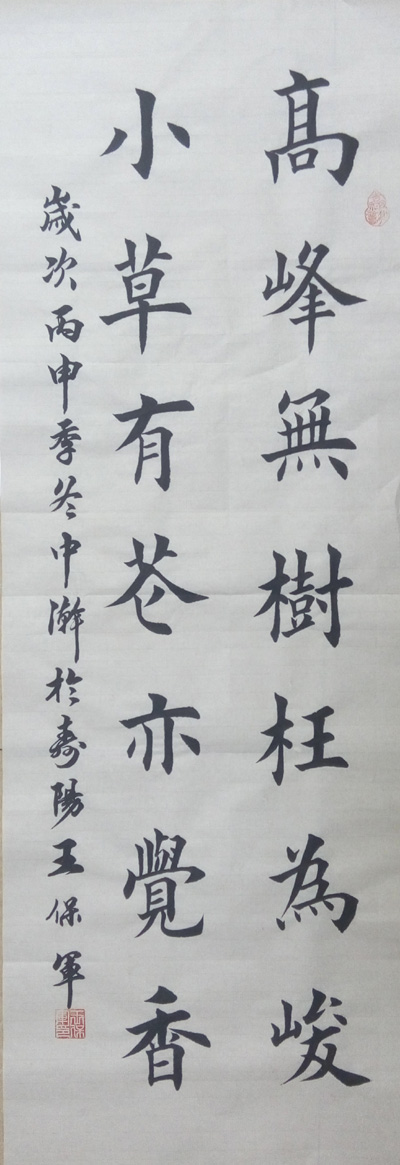 高峰無樹枉為峻
小草有芲亦覺香
歲次丙申季冬中澣於壽陽王保軍